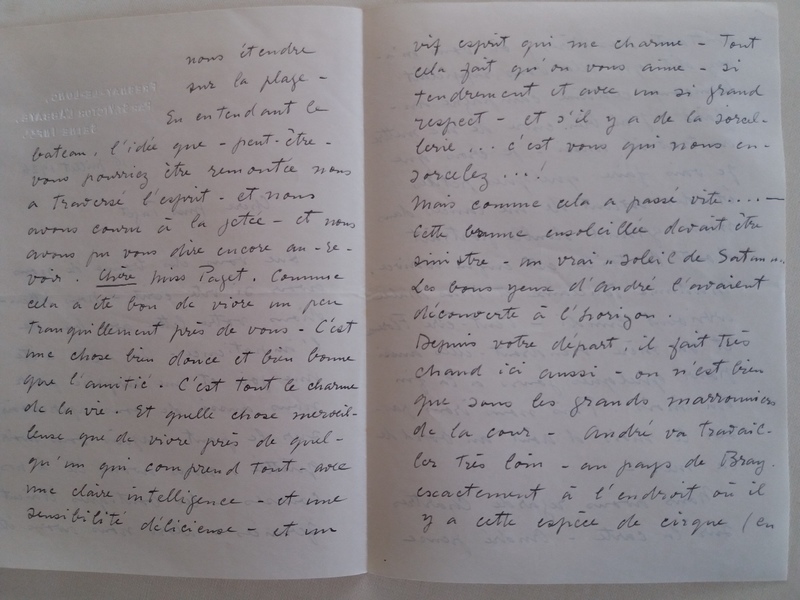 nous étendre
sur la plage -
En entendant le
bateau, l'idée que - peut-être -
vous pourriez être remontée nous
a traversé l'esprit - et nous
avons couru à la jetée - et nous
avons pu vous dire encore au-re-
voir. Chère Miss Paget. Comme
cela a été bon de vivre un peu
tranquillement près de vous - C'est
une chose bien douce et bien bonne
que l'amitié. C'est tout le charme
de la vie. Et quelle chose merveil-
leuse que de vivre près de quel-
qu'un qui comprend tout - avec
une claire intelligence - et une
sensibilité délicieuse - et un
vif esprit qui me charme - Tout
cela fait qu'on vous aime - si
tendrement et avec un si grand
respect - et s'il y a de la sorcel-
lerie ... c'est vous qui nous en-
sorcelez ...!
Mais comme cela a passé vite .... -
Cette brume ensoleillée devait être
sinistre - un vrai "soleil de Satan"..
Les bons yeux d'andré l'avaient
découverte à l'horizon.
Depuis votre départ, il fait très
chaud ici aussi - on n'est bien
que sous les grands marronniers
de la cour - André va travail-
ler très loin - au pays de Bray.
exactement à l'endroit où il
y a cette espèce de cirque (en